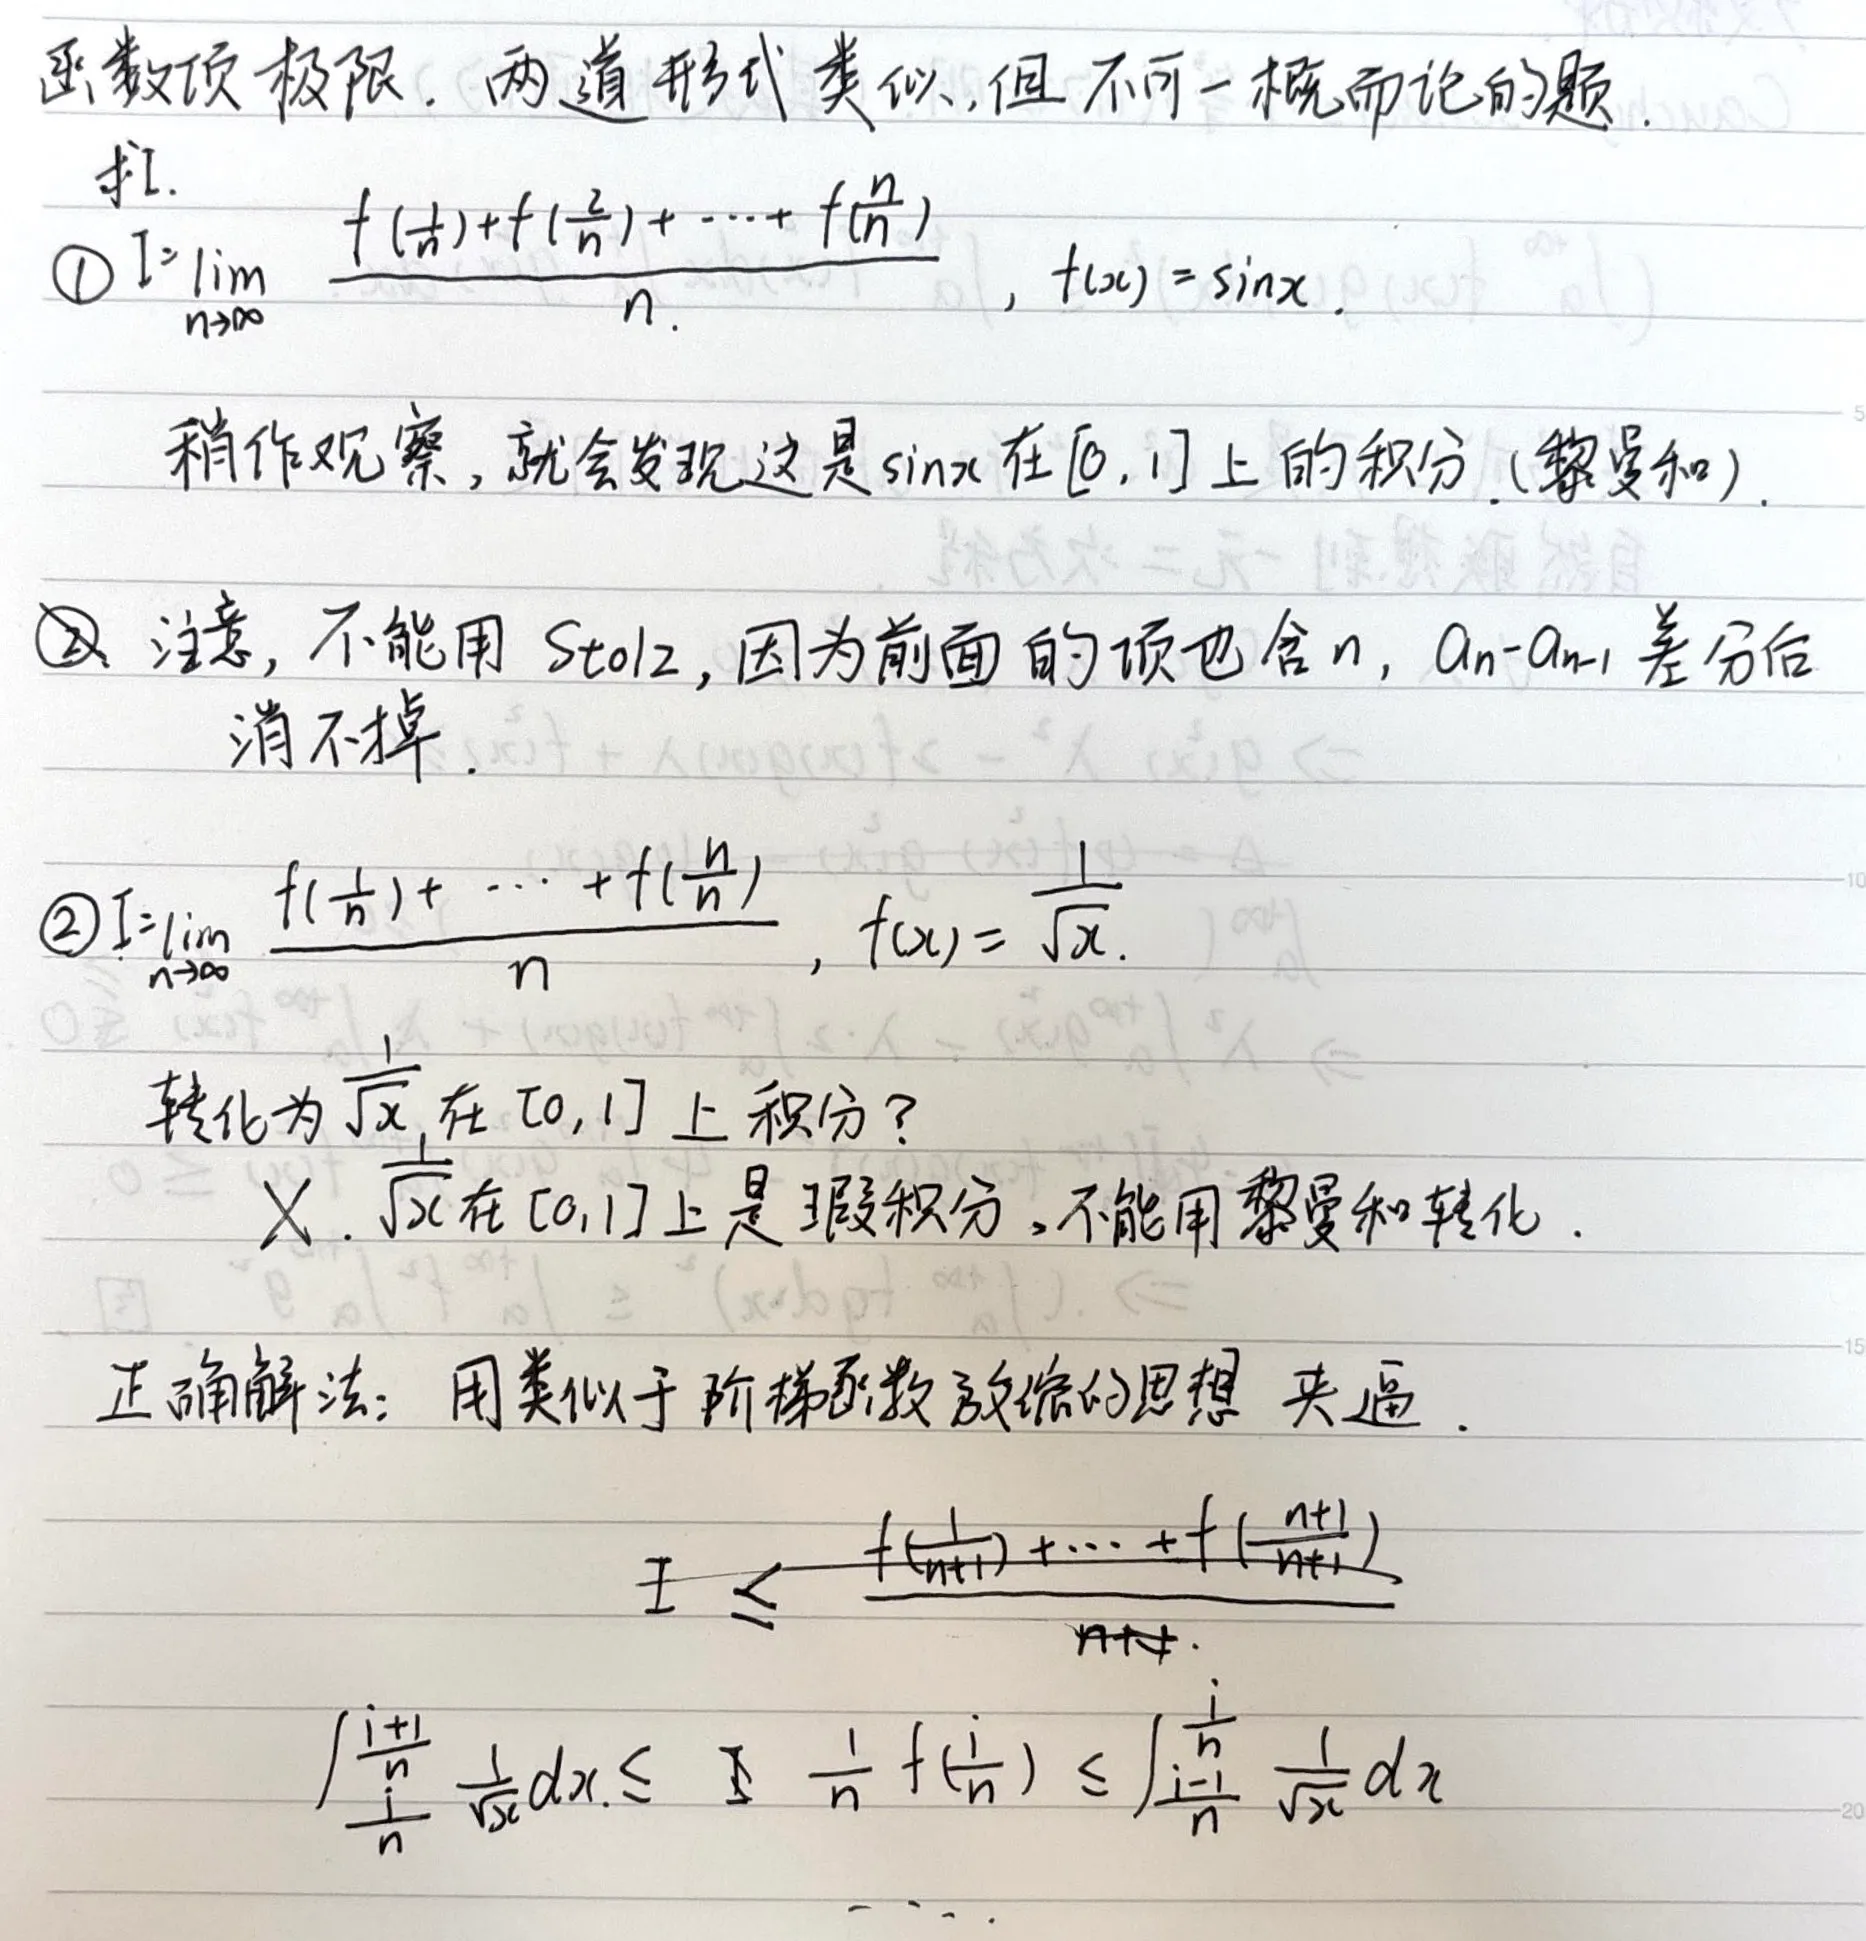 函数项极限. 两道形式类似,但不可一概而论的题.
求I.
① I=lim n→∞ (f(1/n)+f(2/n)+⋯+f(n/n))/n. , f(x)=sinx.
稍作观察,就会发现这是sinx在[0,1]上的积分.(黎曼和).
注意,不能用Stolz,因为前面的项也含n, an-an-1差分后
消不掉.
② I=lim n→∞ (f(1/n)+⋯+f(n/n))/n , f(x)=1/√x.
转化为1/√x在[0,1]上积分?
X. 1/√x在[0,1]上是瑕积分,不能用黎曼和转化.
正确解法: 用类似于阶梯函数放缩的思想 夹逼.
I ≤ (f(1/(n+1))+⋯+f((n+1)/(n+1)))/(n+1).
∫_{i/n}^{(i+1)/n} 1/√x dx. ≤ 1/n f(i/n) ≤ ∫_{(i-1)/n}^{i/n} 1/√x dx
----.